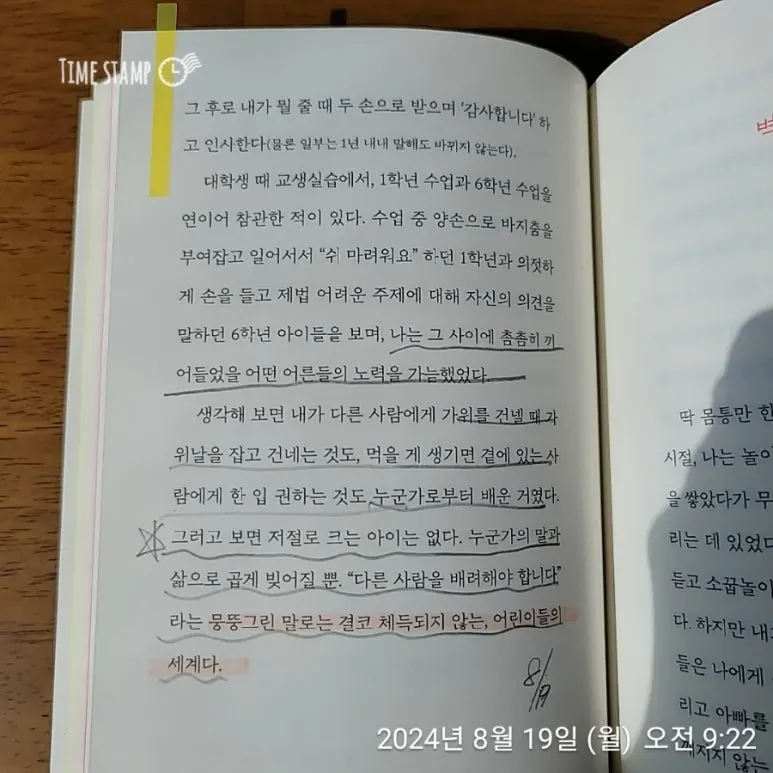 TIME STAMP
그 후로 내가 뭘 줄 때 두 손으로 받으며 '감사합니다' 하
고 인사한다(물론 일부는 1년 내내 말해도 바뀌지 않는다).
대학생 때 교생실습에서, 1학년 수업과 6학년 수업을
연이어 참관한 적이 있다. 수업 중 양손으로 바지춤을
부여잡고 일어서서 “쉬 마려워요” 하던 1학년과 의젓하
게 손을 들고 제법 어려운 주제에 대해 자신의 의견을
말하던 6학년 아이들을 보며, 나는 그 사이에 촘촘히 끼
어들었을 어떤 어른들의 노력을 가늠했었다.
생각해 보면 내가 다른 사람에게 가위를 건넬 때 가
위날을 잡고 건네는 것도, 먹을 게 생기면 곁에 있는 사
람에게 한 입 권하는 것도 누군가로부터 배운 거였다.
그러고 보면 저절로 크는 아이는 없다. 누군가의 말과
삶으로 곱게 빚어질 뿐. “다른 사람을 배려해야 합니다”
라는 뭉뚱그린 말로는 결코 체득되지 않는, 어린이들의
세계다.
8/19
딱 몸통만 한
시절, 나는 놀이
을 쌓았다가 무
리는 데 있었다
듣고 소꿉놀이
다. 하지만 내
들은 나에게
리고 아빠를
꺼지지 않는
2024년 8월 19일 (월) 오전 9:22